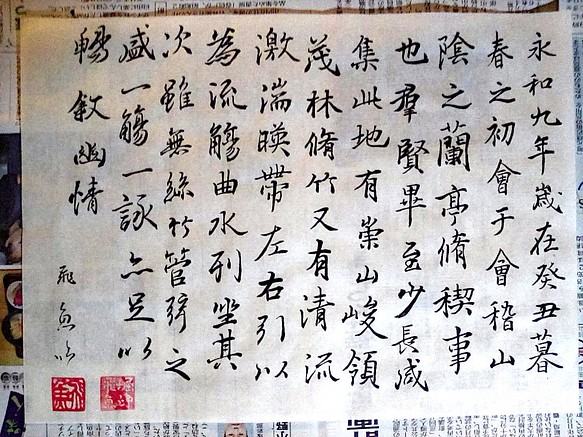 永和九年歲在癸丑暮
春之初會于會稽山
陰之蘭亭脩稧事
也羣賢畢至少長咸
集此地有崇山峻領
茂林脩竹又有清流
激湍暎帶左右引以
為流觴曲水列坐其
次雖無絲竹管弦之
盛一觴一詠亦足以
暢叙幽情